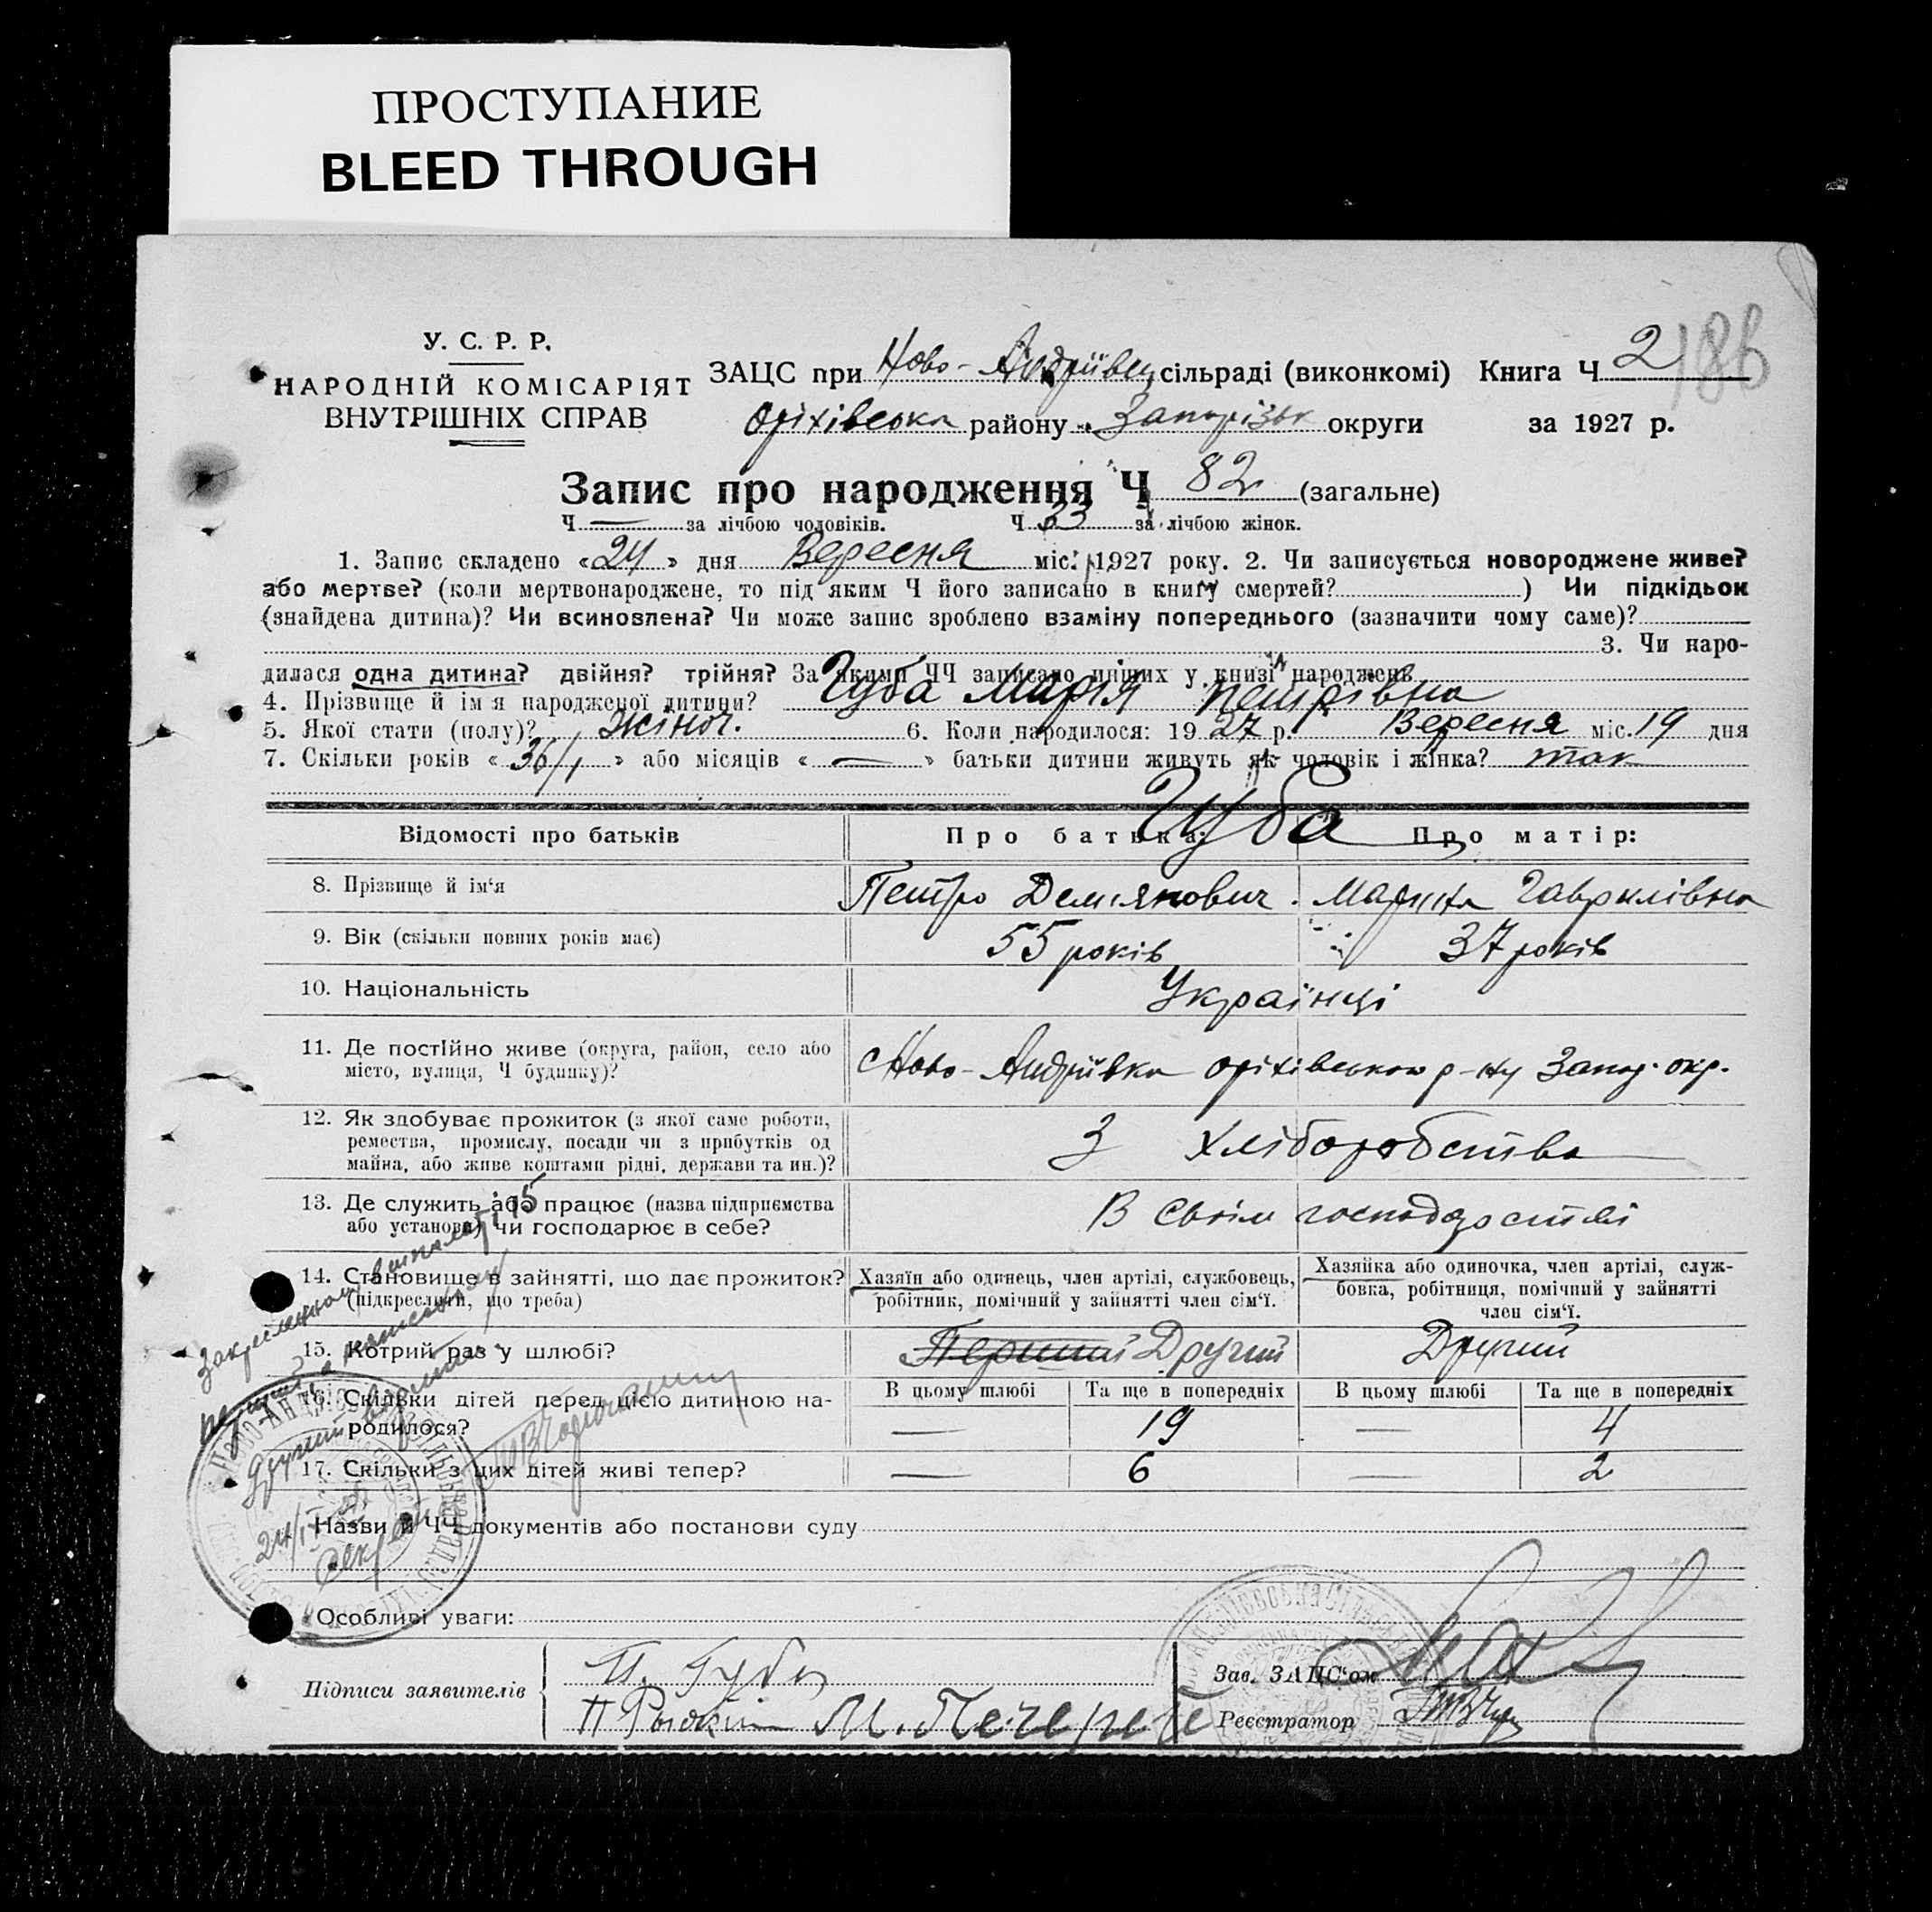 ПРОСТУПАНИЕ
BLEED THROUGH
У. С. Р. Р.
НАРОДНІЙ КОМІСАРІЯТ
ВНУТРІШНІХ СПРАВ
ЗАЦС при Ново-Андріївец сільраді (виконкомі) Книга Ч 2 186
Оріхівська району Запорізьк округи за 1927 р.
Запис про народження Ч 82 (загальне)
Ч — за лічбою чоловіків. Ч 33 за лічбою жінок.
1. Запис складено «24» дня Вересня міс. 1927 року. 2. Чи записується новороджене живе?
або мертве? (коли мертвонароджене, то під яким Ч його записано в книгу смертей? ) Чи підкідьок
(знайдена дитина)? Чи всиновлена? Чи може запис зроблено взаміну попереднього (зазначити чому саме)?
3. Чи наро-
дилася одна дитина? двійня? трійня? За якими ЧЧ записано инших у книзі народжень
4. Прізвище й ім'я народженої дитини? Губа Марія Петрівна
5. Якої стати (полу)? жіноч. 6. Коли народилося: 1927 р. Вересня міс. 19 дня
7. Скільки років « » або місяців «—» батьки дитини живуть як чоловік і жінка? так
Губа
Відомості про батьків Про батька: Про матір:
8. Прізвище й ім'я Петро Демянович. Гаврилівна
9. Вік (скільки повних років має) 55 років 37 років
10. Національність Українці
11. Де постійно живе (округа, район, село або
місто, вулиця, Ч будинку)? Ново-Андріївка оріхівського р-ну Запор. окр.
12. Як здобуває прожиток (з якої саме роботи,
ремества, промислу, посади чи з прибутків од
майна, або живе коштами рідні, держави та ин.)? З хліборобства
13. Де служить або працює (назва підприємства
або установи) чи господарює в себе? В своїм господарстві
14. Становище в зайнятті, що дає прожиток?
(підкреслити, що треба)
Хазяїн або одинець, член артілі, службовець,
робітник, помічний у зайнятті член сім'ї.
Хазяйка або одиночка, член артілі, служ-
бовка, робітниця, помічний у зайнятті
член сім'ї.
15. Котрий раз у шлюбі? Перший Другий Другий
16. Скільки дітей перед цією дитиною на-
родилося?
В цьому шлюбі Та ще в попередніх В цьому шлюбі Та ще в попередніх
— 19 — 4
17. Скільки з цих дітей живі тепер? — 6 — 2
Назви й ЧЧ документів або постанови суду
Особливі уваги:
Підписи заявителів П. Губа
М. Печере
Зав. ЗАЦС'ом
Реєстратор